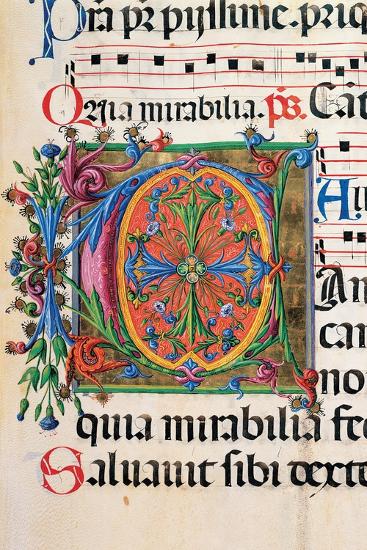 Pra pr pyssime. priq
Quia mirabilia. ps. Cat
C An
An
can
no
quia mirabilia fec
Saluauit sibi dexte